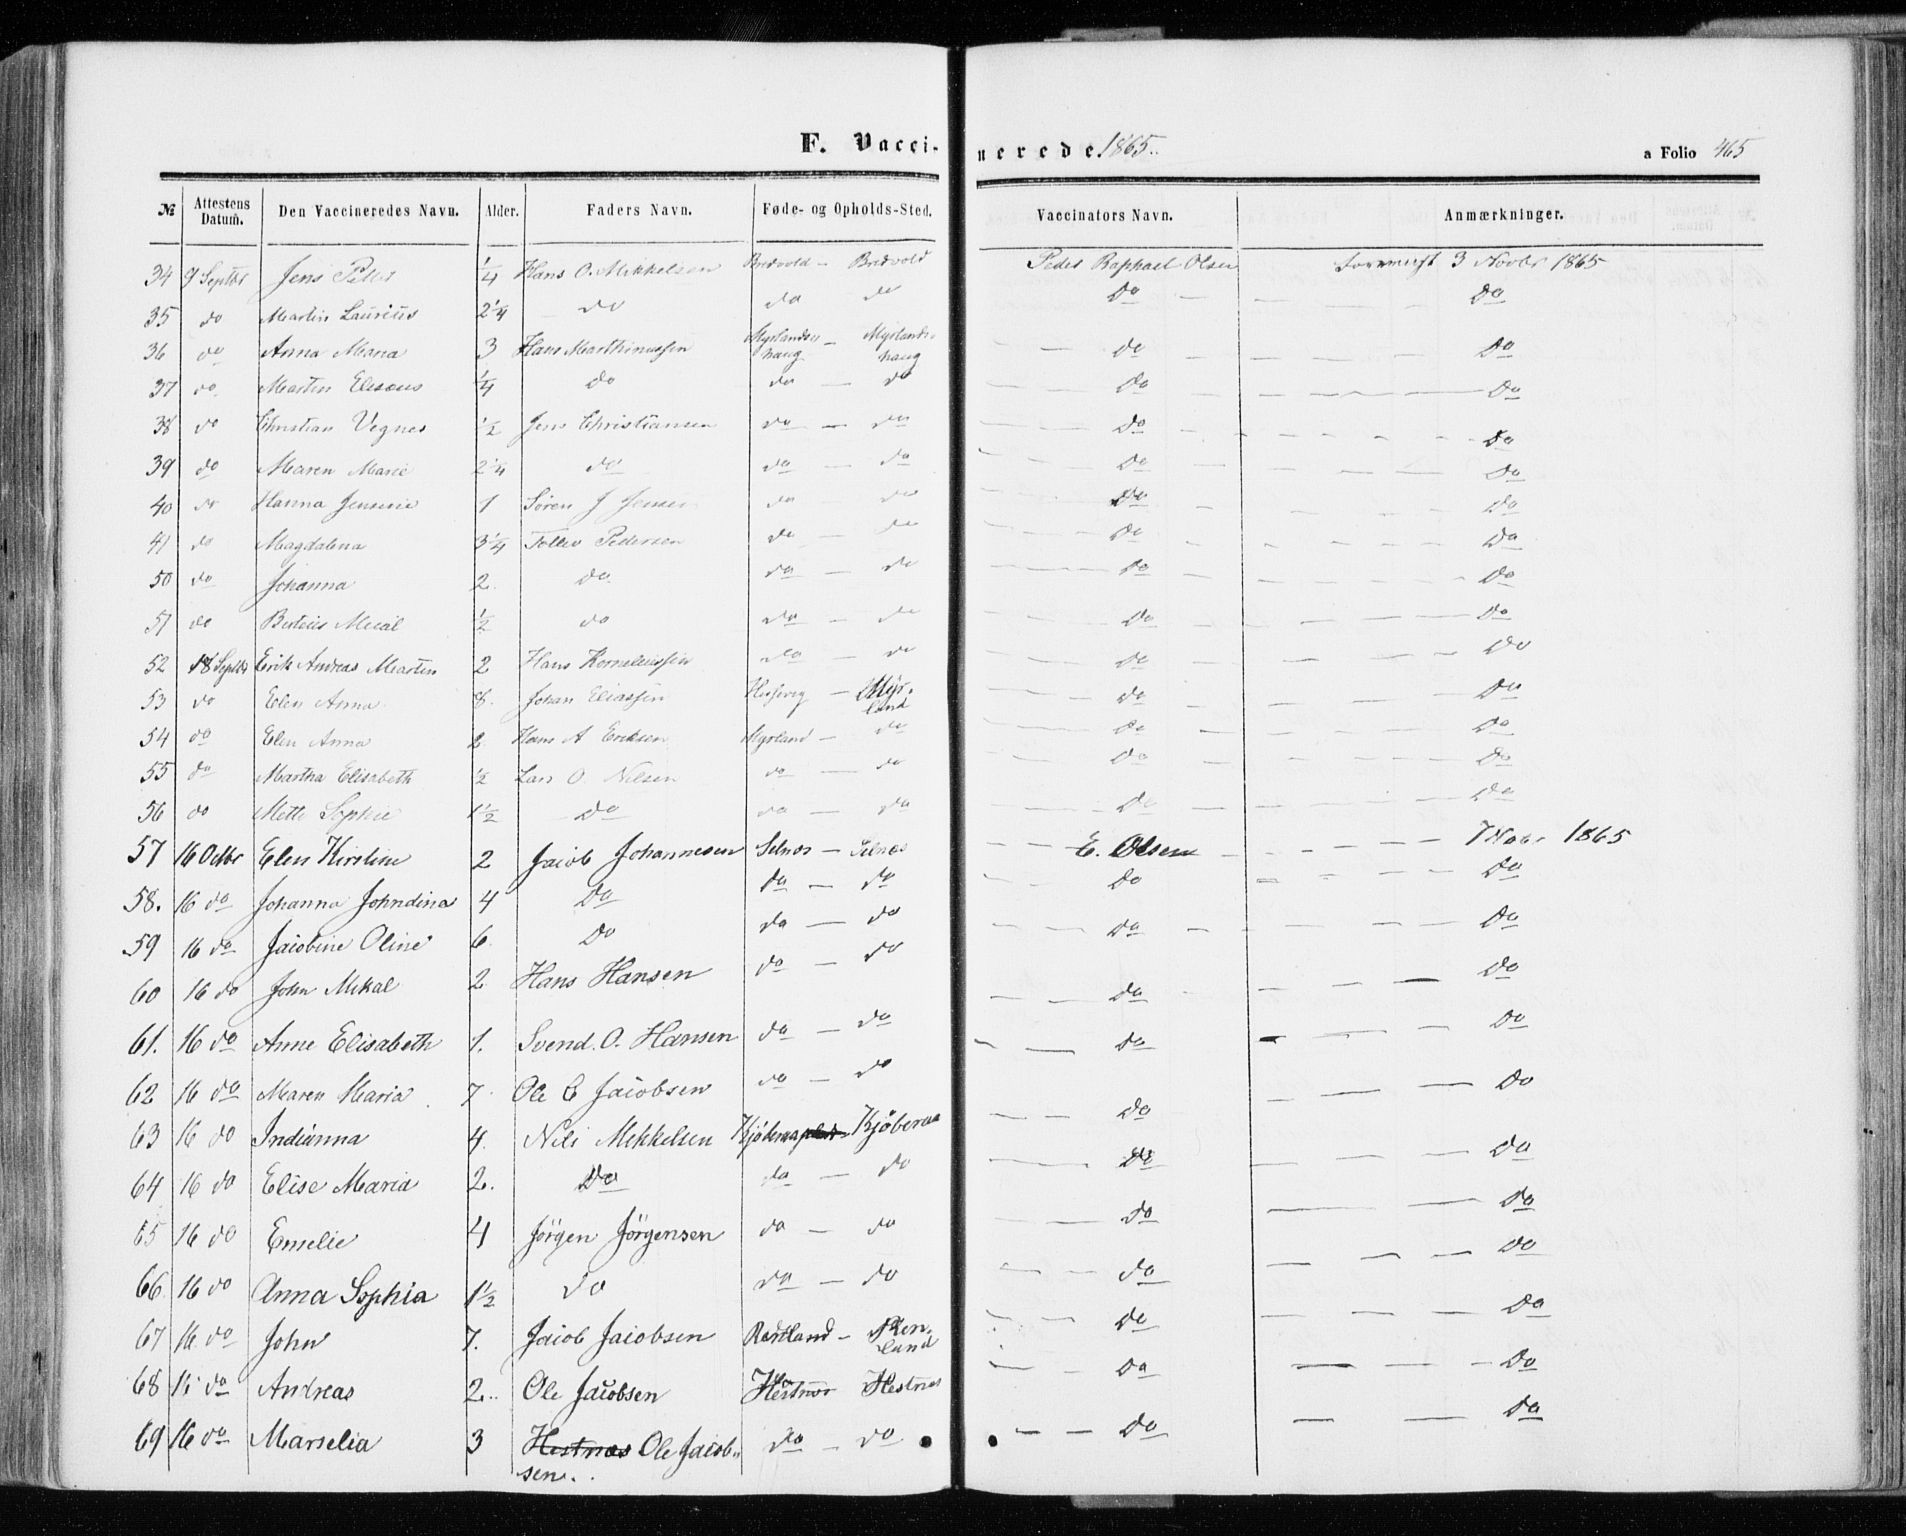 F. Vaccinerede 1865. a Folio 465
№ Attestens Datum. Den Vaccineredes Navn. Alder. Faders Navn. Føde- og Opholds-Sted. Vaccinators Navn. Anmærkninger.
34 9 Septbr Jens Peder 1/4 Hans O. Mikkelsen Bredvold - Bredvold Peder Raphael Olsen 3 Novbr 1865
35 do Martin Laurius 2 1/4 do do do Do Do
36 do Anna Maria 3 Hans Marthinussen Myrlandshaug - Myrlandshaug do Do
37 do Martin Eliseus 1/4 do do - do Do Do
38 do Christian Vegner 1/2 Jens Christiansen do - do Do Do
39 do Maren Marie 2 1/4 do do - do Do Do
40 do Hanna Jensine 1 Sören J Jensen do - do Do Do
41 do Magdalena 3 1/4 Tollev Pedersen do - do Do Do
50 do Johanna 2 do do - do Do Do
51 do Mical 1/2 do do - do Do Do
52 18 Septbr Erik Andreas Martin 2 Hans Korneliussen do - do do Do
53 do Elen Anna 8. Johan Eliassen - Myrland do Do
54 do Elen Anna 2 Hans A Eriksen Myrland - do do Do
55 do Martha Elisabeth 1/2 Lars O. Nilsen do - do Do Do
56 do Mette Sophie 1 1/2 do do - do Do Do
57 16 Octbr Elen Kirstine 2 Jacob Johannesen Selnæs - Selnæs E. Olsen 7 Novbr 1865
58. 16 do Johanna Johndina 4 Do do - do Do Do
59 16 do Jacobine Oline 6. Do do - do Do Do
60 16 do John Mikal 2 Hans Hansen do - do Do Do
61. 16 do Anne Elisabeth 1. Svend. O. Hansen do - do Do Do
62 16 do Maren Maria 7. Ole E Jacobsen do - do Do Do
63 16 do Indianna 4. Nils Mikkelsen Kjöberaa - Kjöberaa Do Do
64 16 do Elise Maria 2. Do do - do Do Do
65 16 do Emelie 4 Jörgen Jörgensen do - do Do Do
66 16 do Anna Sophia 1 1/2 do do - do do Do
67 16. do John 7. Jacob Jacobsen - Do Do
68 16 do Andreas 2.. Ole Jacobsen Hestnæs Hestnæs Do Do
69 16 do Marselia 3 Hestnæs Ole Jacob-
sen. do - do Do Do